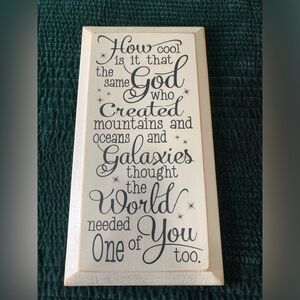 How cool
is it that
the same God
who
Created
mountains and
oceans and
Galaxies
thought
the
World
needed
One of You
too.